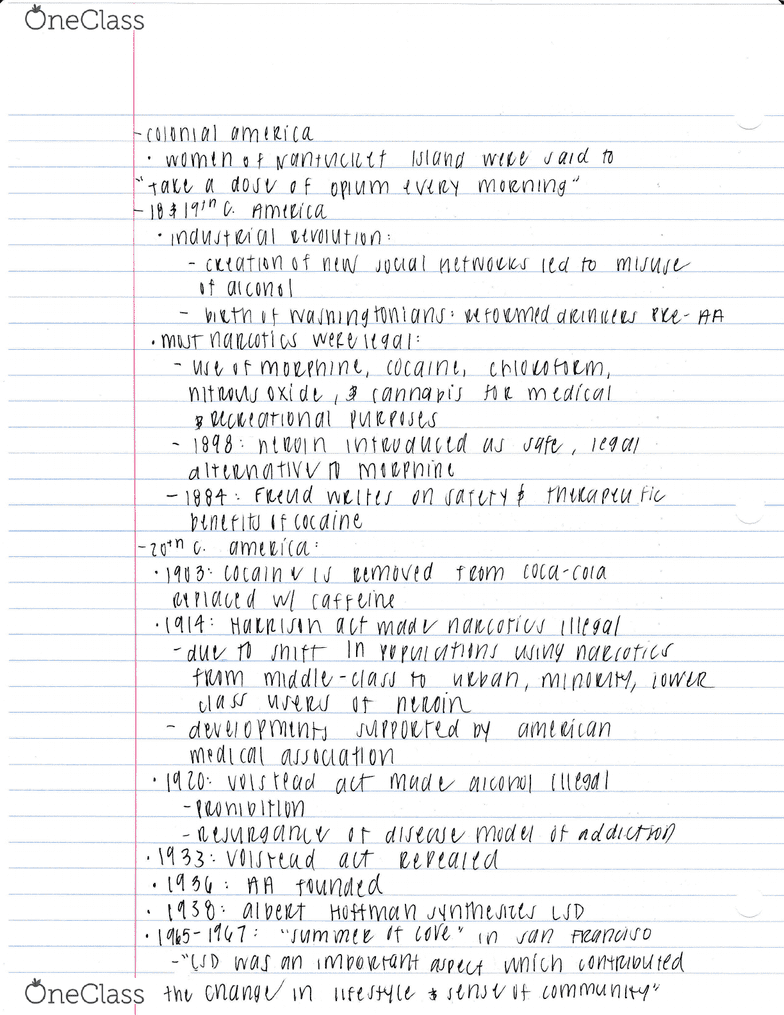 OneClass
- colonial america
• women of Nantucket Island were said to
"take a dose of opium every morning"
- 18 & 19th c. America
• industrial revolution:
- creation of new social networks led to misuse
of alcohol
- birth of Washingtonians: reformed drinkers pre-AA
• most narcotics were legal:
- use of morphine, cocaine, chloroform,
nitrous oxide, & cannabis for medical
& recreational purposes
- 1898: heroin introduced as safe, legal
alternative to morphine
- 1884: Freud writes on safety & therapeutic
benefits of cocaine
- 20th c. america:
• 1903: cocaine is removed from coca-cola
replaced w/ caffeine
• 1914: Harrison act made narcotics illegal
- due to shift in populations using narcotics
from middle-class to urban, minority, lower
class users of heroin
- developments supported by american
medical association
• 1920: volstead act made alcohol illegal
- prohibition
- resurgance of disease model of addiction
• 1933: volstead act repealed
• 1936: AA founded
• 1938: albert Hoffman synthesizes LSD
• 1965-1967: "summer of love" in san francisco
- "LSD was an important aspect which contributed
the change in lifestyle & sense of community"
OneClass